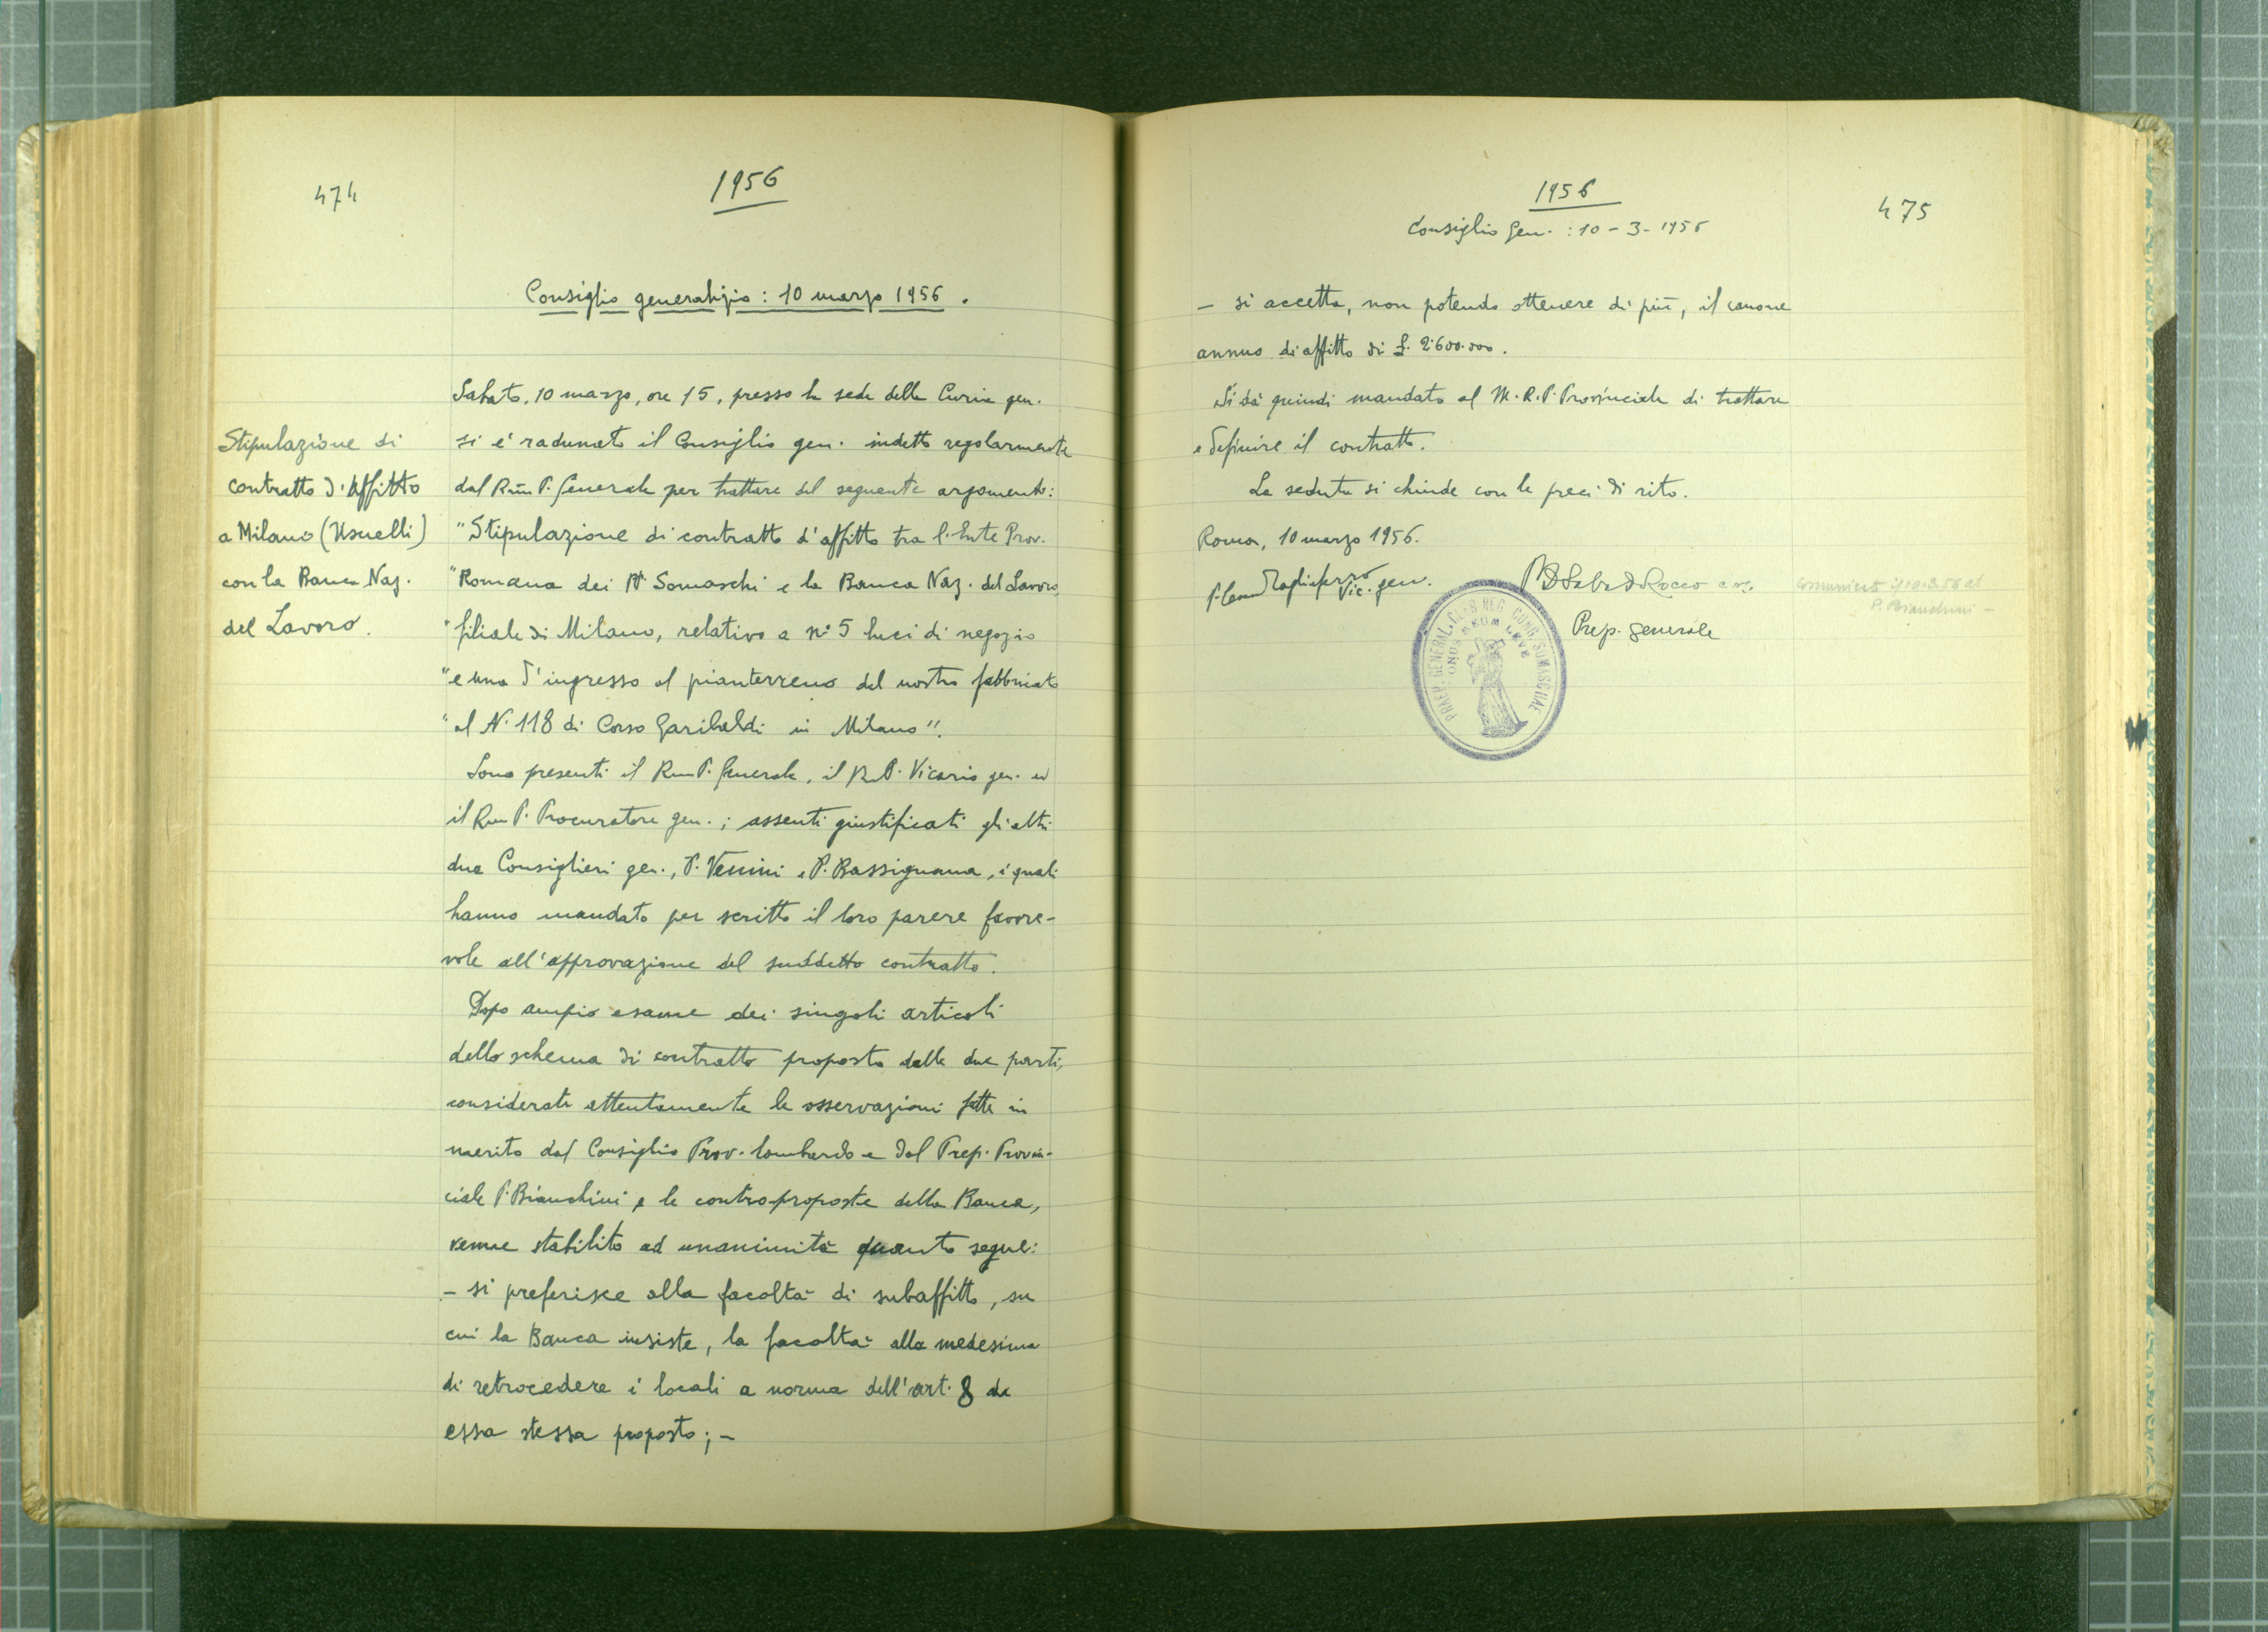 474
1956
Consiglio generalizio: 10 marzo 1956.
Stipulazione di
contratto d'Affitto
a Milano (Usuelli)
con la Banca Naz.
del Lavoro.
Sabato, 10 marzo, ore 15, presso la sede della Curia gen.
si è radunato il Consiglio gen. indetto regolarmente
dal Rmo P. Generale per trattare del seguente argomento:
"Stipulazione di contratto d'affitto tra l'Ente Prov.
"Romana dei PP. Somaschi e la Banca Naz. del Lavoro,
"filiale di Milano, relativo a n° 5 luci di negozio
"e una d'ingresso al pianterreno del nostro fabbricato
"al N. 118 di Corso Garibaldi in Milano".
Sono presenti il Rmo P. Generale, il R.P. Vicario gen. ed
il Rmo P. Procuratore gen.; assenti giustificati gli altri
due Consiglieri gen., P. Venini e P. Bassignana, i quali
hanno mandato per scritto il loro parere favore-
vole all'approvazione del suddetto contratto.
Dopo ampio esame dei singoli articoli
dello schema di contratto proposto dalle due parti,
considerate attentamente le osservazioni fatte in
merito dal Consiglio Prov. lombardo e dal Prep. Provin-
ciale P. Bianchini e le controproposte della Banca,
venne stabilito ad unanimità quanto segue:
- si preferisce alla facoltà di subaffitto, su
cui la Banca insiste, la facoltà alla medesima
di retrocedere i locali a norma dell'art. 8 da
essa stessa proposto; -
1956
475
Consiglio Gen. : 10 - 3 - 1956
- si accetta, non potendo ottenere di più, il canone
annuo di affitto di £. 2.600.000.
Si dà quindi mandato al M.R.P. Provinciale di trattare
e definire il contratto.
La seduta si chiude con le preci di rito.
Roma, 10 marzo 1956.
Tagliaferro Vic. gen.
Rocco c.r.s.
Prep. generale
Comunicato il 10.3.56 al
P. Bianchini -
PRAEP. GENERAL. CLER. REG. CONG. SOMASCHAE
ONUS MEUM LEVE